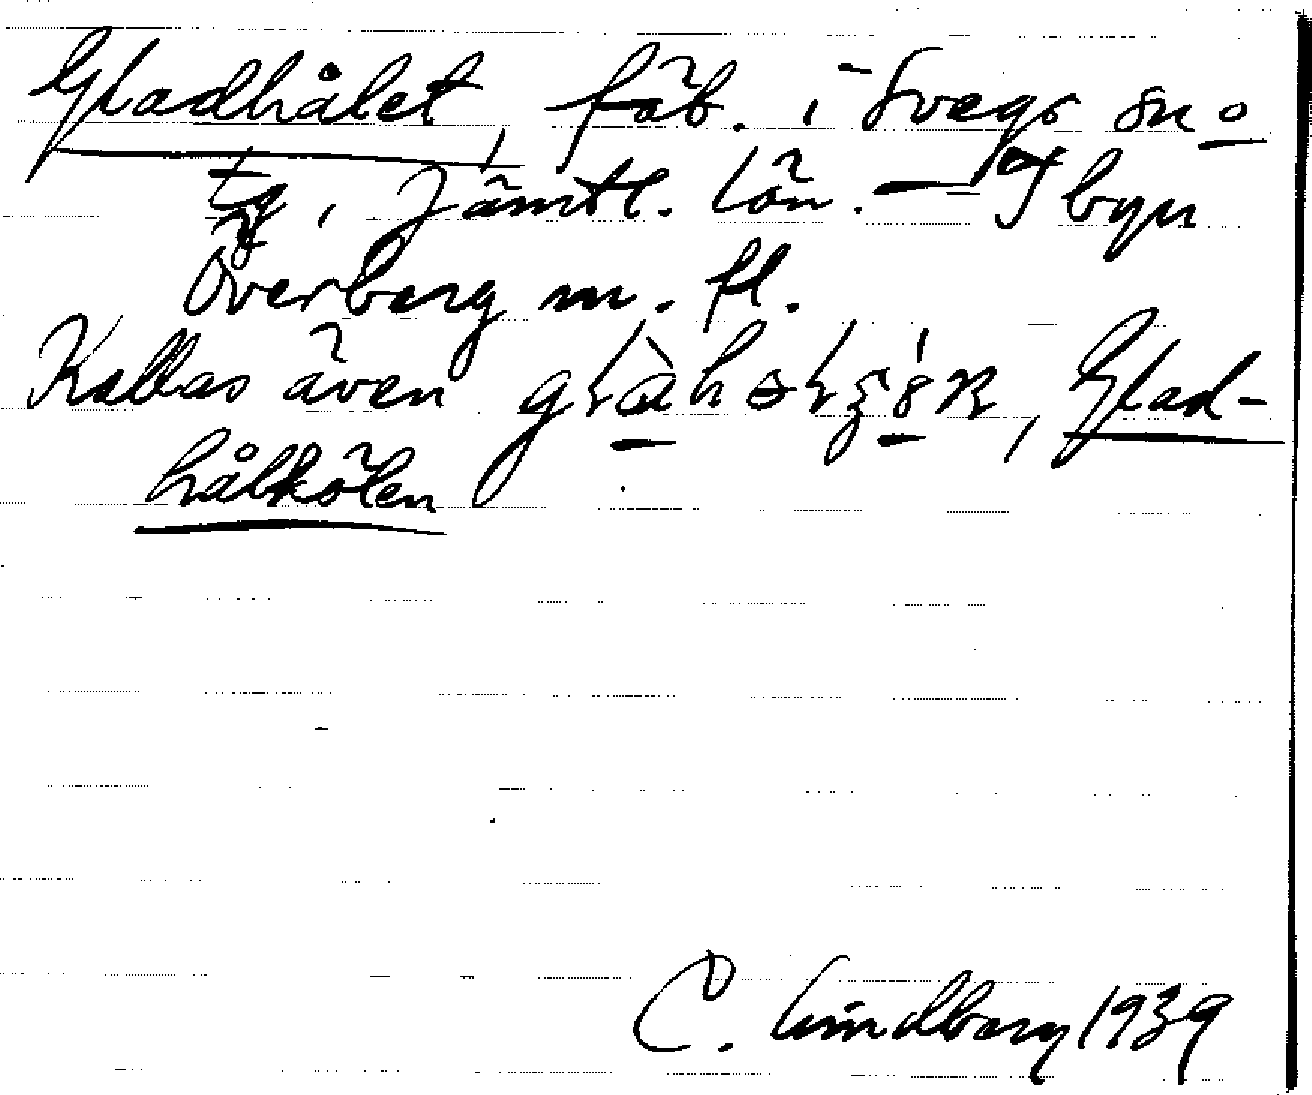 Gladhålet, fäb. i Svegs sn o
tg, Jämtl. län. — I byn
Överberg m. fl.
Kallas även Glad-
hålkölen
C. Lindberg 1939